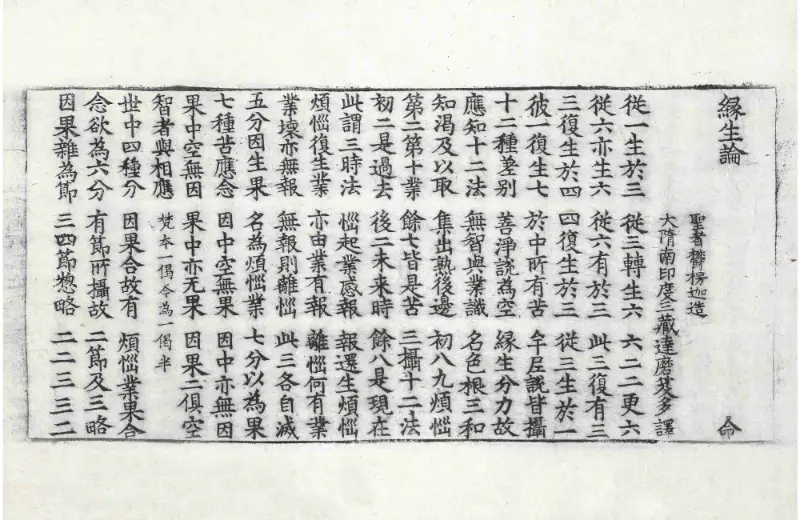 縁生論 命
聖者欝楞迦造
大隋南印度三藏達磨笈多譯
従一生於三 従三轉生六 六二二更六
従六亦生六 従六有於三 此三復有三
三復生於四 四復生於三 従三生於一
彼一復生七 於中所有苦 牟尼説皆攝
十二種差別 善淨説為空 縁生分力故
應知十二法 無智與業識 名色根三和
知渴及以取 集出熟後邊 初八九煩惱
第二第十業 餘七皆是苦 三攝十二法
初二是過去 後二未來時 餘八是現在
此謂三時法 惱起業感報 報還生煩惱
煩惱復生業 亦由業有報 離惱何有業
業壞亦無報 無報則離惱 此三各自滅
五分因生果 名為煩惱業 七分以為果
七種苦應念 因中空無果 因中亦無因
果中空無因 果中亦无果 因果二俱空
智者與相應 梵本一偈今為一偈半
世中四種分 因果合故有 煩惱業果合
念欲為六分 有節所攝故 二節及三略
因果雜為節 三四節惣略 二二三三二